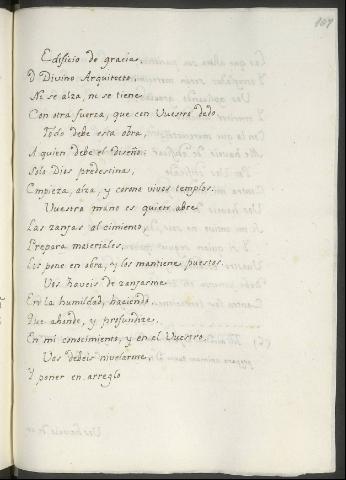 107
Edificio de gracias,
O Divino Arquitecto,
Ni se alza, ni se tiene
Con otra fuerza, que con Vuestro dedo.
Todo debe esta obra,
A quien debe el diseño:
Solo Dios predestina,
Empieza, alza, y corona vivos templos.
Vuestra mano es quien abre
Las zanjas al cimiento,
Prepara materiales,
Los pone en obra, y los mantiene puestos.
Vos haveis de zanjarme
En la humildad, haciendo,
Que ahonde, y profundize,
En mi conocimiento, y en el Vuestro.
Vos debeis nivelarme,
Y poner en arreglo